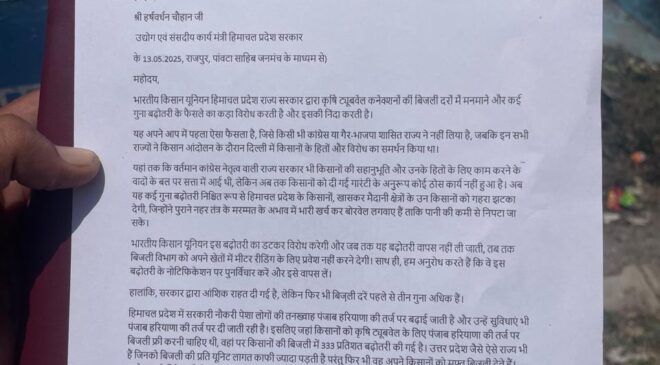 श्री हर्षवर्धन चौहान जी
उद्योग एवं संसदीय कार्य मंत्री हिमाचल प्रदेश सरकार
के 13.05.2025, राजपुर, पांवटा साहिब जनमंच के माध्यम से)
महोदय,
भारतीय किसान यूनियन हिमाचल प्रदेश राज्य सरकार द्वारा कृषि ट्यूबवेल कनेक्शनों की बिजली दरों में मनमाने और कई
गुना बढ़ोतरी के फैसले का कड़ा विरोध करती है और इसकी निंदा करती है।
यह अपने आप में पहला ऐसा फैसला है, जिसे किसी भी कांग्रेस या गैर-भाजपा शासित राज्य ने नहीं लिया है, जबकि इन सभी
राज्यों ने किसान आंदोलन के दौरान दिल्ली में किसानों के हितों और विरोध का समर्थन किया था।
यहां तक कि वर्तमान कांग्रेस नेतृत्व वाली राज्य सरकार भी किसानों की सहानुभूति और उनके हितों के लिए काम करने के
वादों के बल पर सत्ता में आई थी, लेकिन अब तक किसानों को दी गई गारंटी के अनुरूप कोई ठोस कार्य नहीं हुआ है। अब
यह कई गुना बढ़ोतरी निश्चित रूप से हिमाचल प्रदेश के किसानों, खासकर मैदानी क्षेत्रों के उन किसानों को गहरा झटका
देगी, जिन्होंने पुराने नहर तंत्र के मरम्मत के अभाव में भारी खर्च कर बोरवेल लगवाए हैं ताकि पानी की कमी से निपटा जा
सके।
भारतीय किसान यूनियन इस बढ़ोतरी का डटकर विरोध करेगी और जब तक यह बढ़ोतरी वापस नहीं ली जाती, तब तक
बिजली विभाग को अपने खेतों में मीटर रीडिंग के लिए प्रवेश नहीं करने देगी। साथ ही, हम अनुरोध करते हैं कि वे इस
बढ़ोतरी के नोटिफिकेशन पर पुनर्विचार करें और इसे वापस लें।
हालांकि, सरकार द्वारा आंशिक राहत दी गई है, लेकिन फिर भी बिजली दरें पहले से तीन गुना अधिक हैं।
हिमाचल प्रदेश में सरकारी नौकरी पेशा लोगों की तनख्वाह पंजाब हरियाणा की तर्ज पर बढ़ाई जाती है और उन्हें सुविधाएं भी
पंजाब हरियाणा की तर्ज पर दी जाती रही है। इसलिए जहां किसानों को कृषि ट्यूबवेल के लिए पंजाब हरियाणा की तर्ज पर
बिजली फ्री करनी चाहिए थी, वहां पर किसानों की बिजली में 333 प्रतिशत बढ़ोतरी की गई है। उत्तर प्रदेश जैसे ऐसे राज्य भी
हैं जिनको बिजली की प्रति यूनिट लागत काफी ज्यादा पड़ती है परंतु फिर भी वह अपने किसानों को मुफ्त बिजली देते हैं।